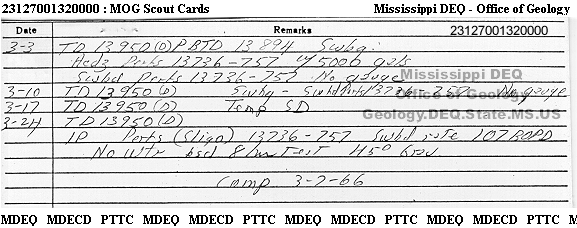 23127001320000 : MOG Scout Cards Mississippi DEQ - Office of Geology
Date Remarks 23127001320000
3-3 TD 13,950 (D) PBTD 13,894 Swbg.
Acdz Perfs 13736-757 w/ 5000 gals
Swbd Perfs 13736-757 No gauge
Mississippi DEQ
3-10 TD 13950 (D) Swbg - Swbd Perfs 13736-757 No gauge
Office of Geology
3-17 TD 13950 (D) Temp SD
Geology.DEQ.State.MS.US
3-24 TD 13950 (D)
IP Perfs (Sligo) 13736-757 Swbd rate 107 BOPD
No Wtr bsd 8 hr Test 45° Grav
Comp 3-7-66
MDEQ MDECD PTTC MDEQ MDECD PTTC MDEQ MDECD PTTC MDEQ MDECD PTTC MDEQ